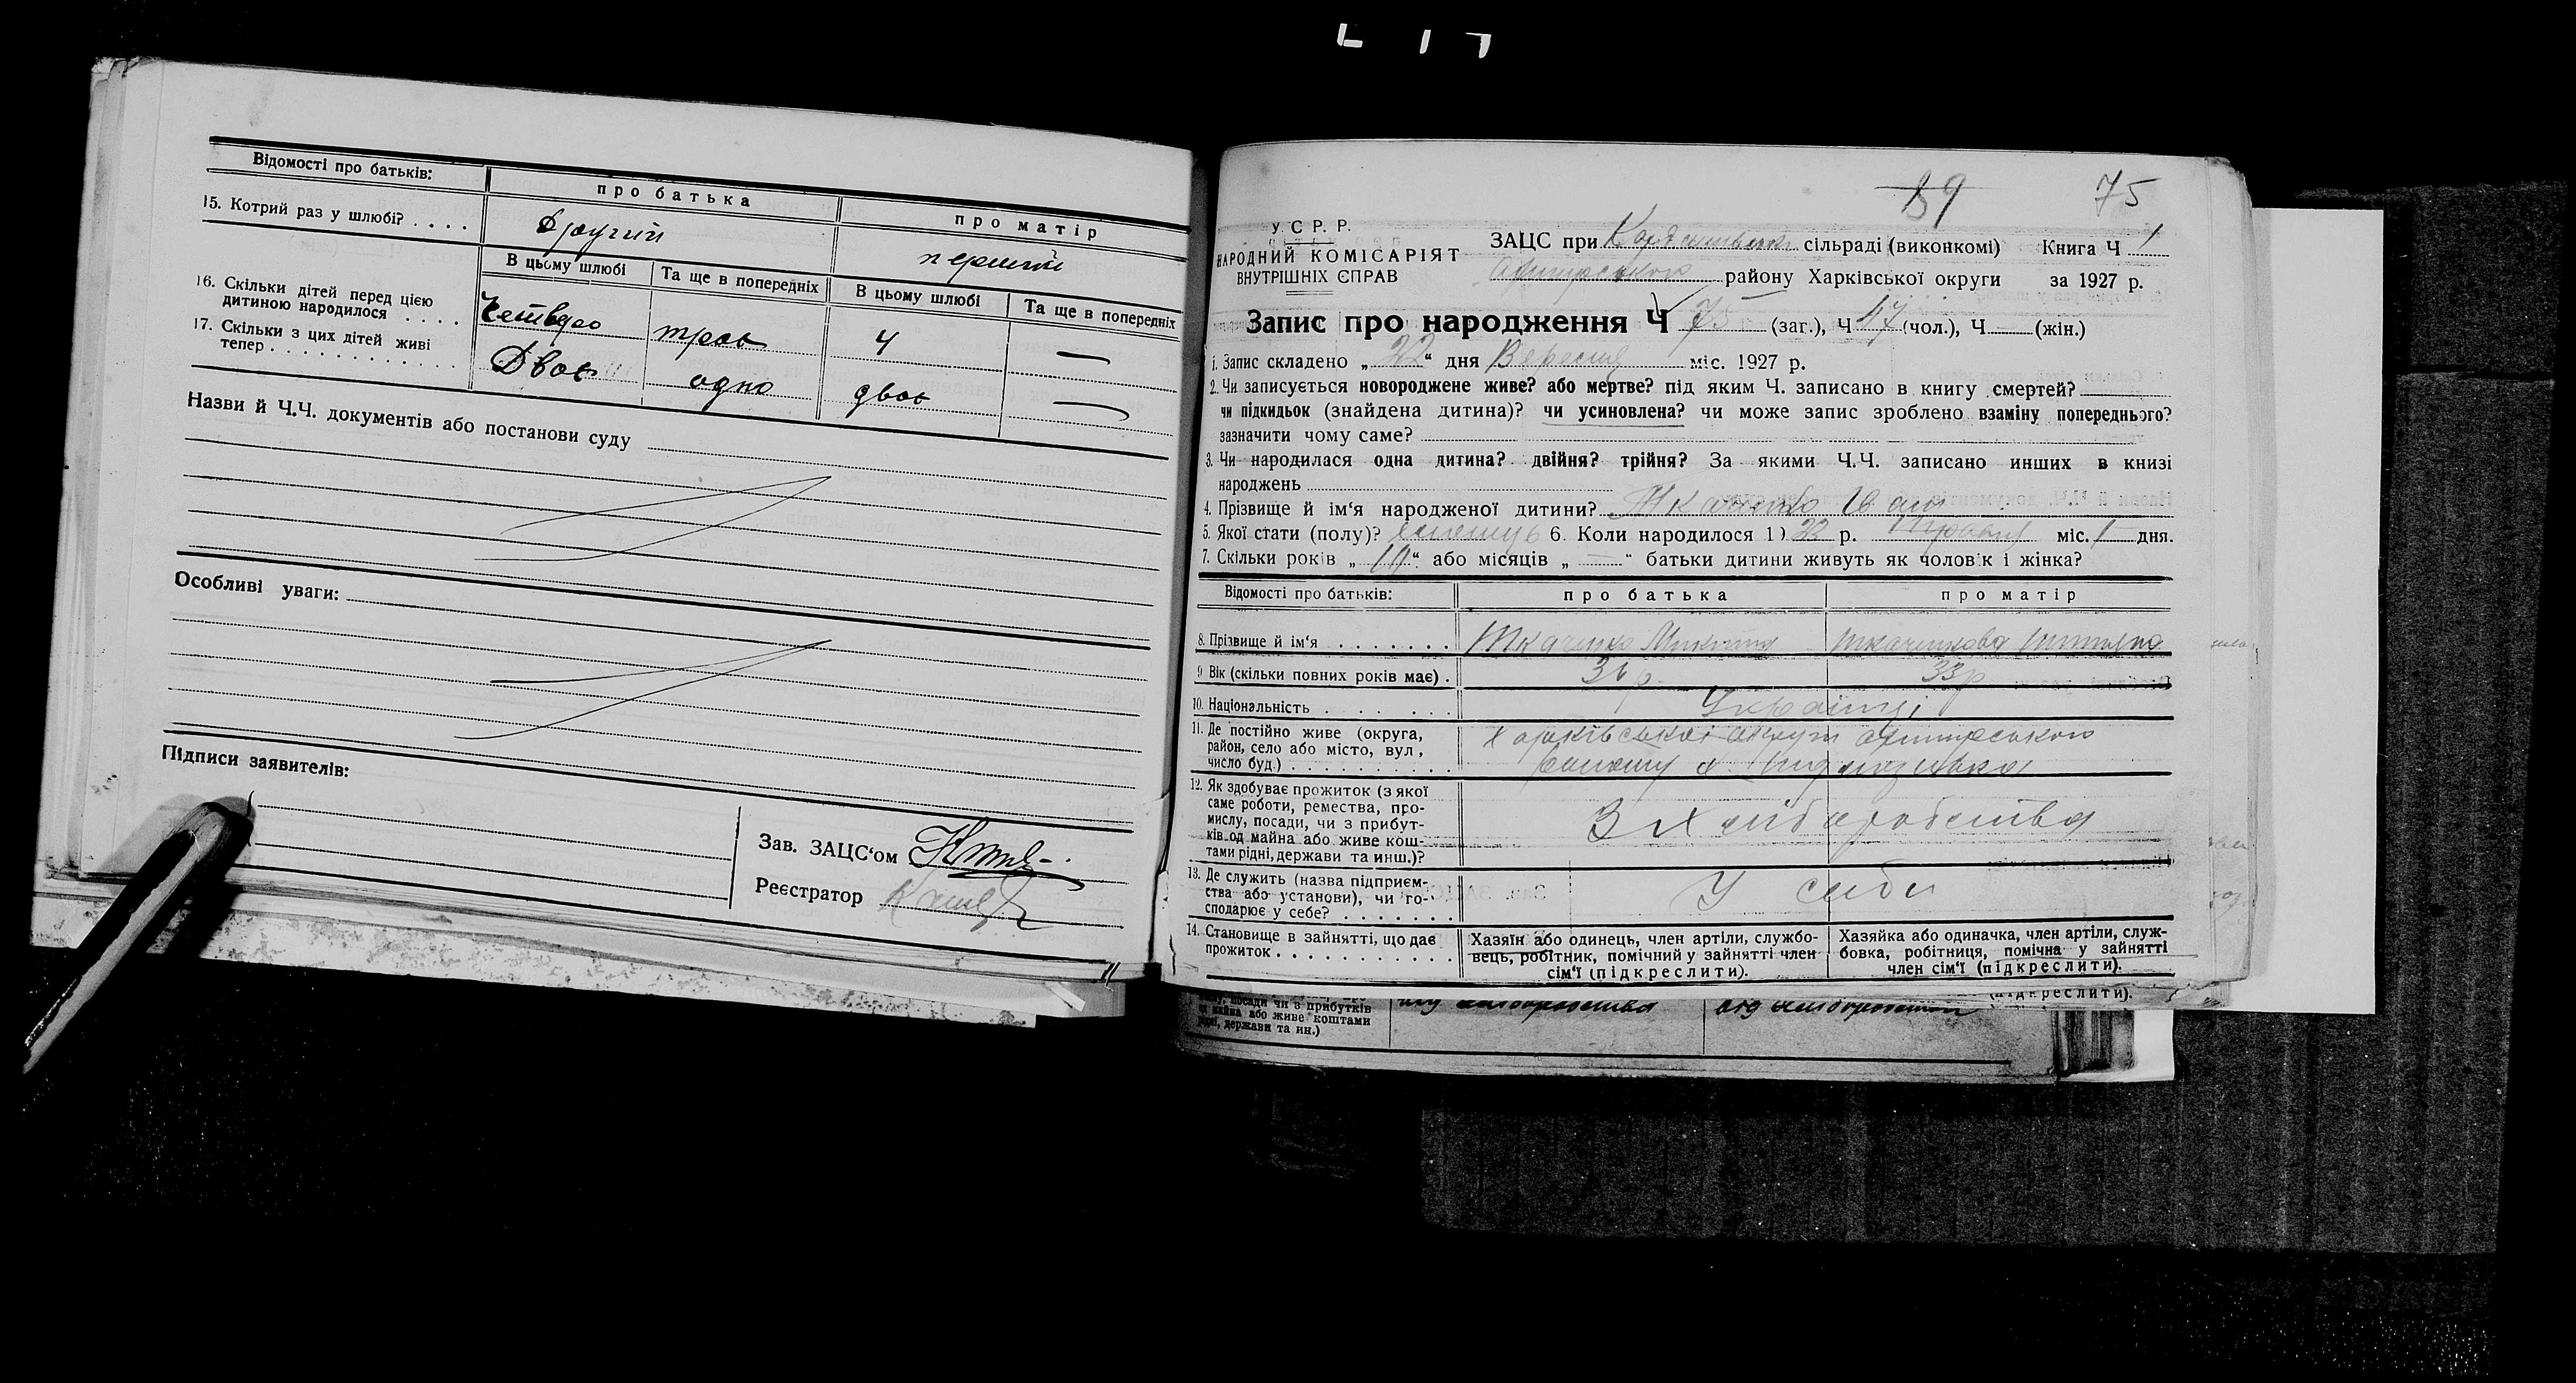 Відомості про батьків: про батька про матір
15. Котрий раз у шлюбі? . . . . Другий перший
В цьому шлюбі Та ще в попередніх В цьому шлюбі Та ще в попередніх
16. Скільки дітей перед цією
дитиною народилося . . . . Четверо троє 4 —
17. Скільки з цих дітей живі
тепер . . . . . . . . . . Двоє одно двоє —
Назви й Ч.Ч. документів або постанови суду
Особливі уваги:
Підписи заявителів:
Зав. ЗАЦС‘ом
Реєстратор
89 75
У.С.Р.Р.
НАРОДНИЙ КОМІСАРІЯТ
ВНУТРІШНІХ СПРАВ
ЗАЦС при сільраді (виконкомі) Книга Ч 1
району Харківської округи за 1927 р.
Запис про народження Ч 75 (заг.), Ч 47 (чол.), Ч — (жін.)
1. Запис складено „ 22 “ дня Вересня міс. 1927 р.
2. Чи записується новороджене живе? або мертве? під яким Ч. записано в книгу смертей?
чи підкидьок (знайдена дитина)? чи усиновлена? чи може запис зроблено взаміну попереднього?
зазначити чому саме?
3. Чи народилася одна дитина? двійня? трійня? За якими Ч.Ч. записано инших в книзі
народжень
4. Прізвище й ім‘я народженої дитини? Ткаченко Іван
5. Якої стати (полу)? 6. Коли народилося 1) 22 р. міс. 1 дня.
7. Скільки років „ “ або місяців „ — “ батьки дитини живуть як чоловік і жінка?
Відомості про батьків: про батька про матір
8. Прізвище й ім‘я . . . . . . . Ткаченко Микита Ткаченкова Тетяна
9 Вік (скільки повних років має) . 36 р. 33 р
10. Національність . . . . . . Українці
11. Де постійно живе (округа,
район, село або місто, вул,
число буд.) . . . . . . . . . . Харківської округи
12. Як здобуває прожиток (з якої
саме роботи, ремества, про-
мислу, посади, чи з прибут-
ків од майна або живе кош-
тами рідні, держави та инш.)? З хліборобства
13. Де служить (назва підприєм-
ства або установи), чи го-
сподарює у себе? . . . . . . . У себе
14. Становище в зайнятті, що дає
прожиток . . . . . . . . . . . .
Хазяїн або одинець, член артіли, службо-
вець, робітник, помічний у зайнятті член
сім‘ї (підкреслити).
Хазяйка або одиначка, член артіли, служ-
бовка, робітниця, помічна у зайнятті
член сім‘ї (підкреслити).
(підкреслити).
посади чи з прибутків
од майна або живе коштами
рідні, держави та ин.) від хліборобства від хліборобства